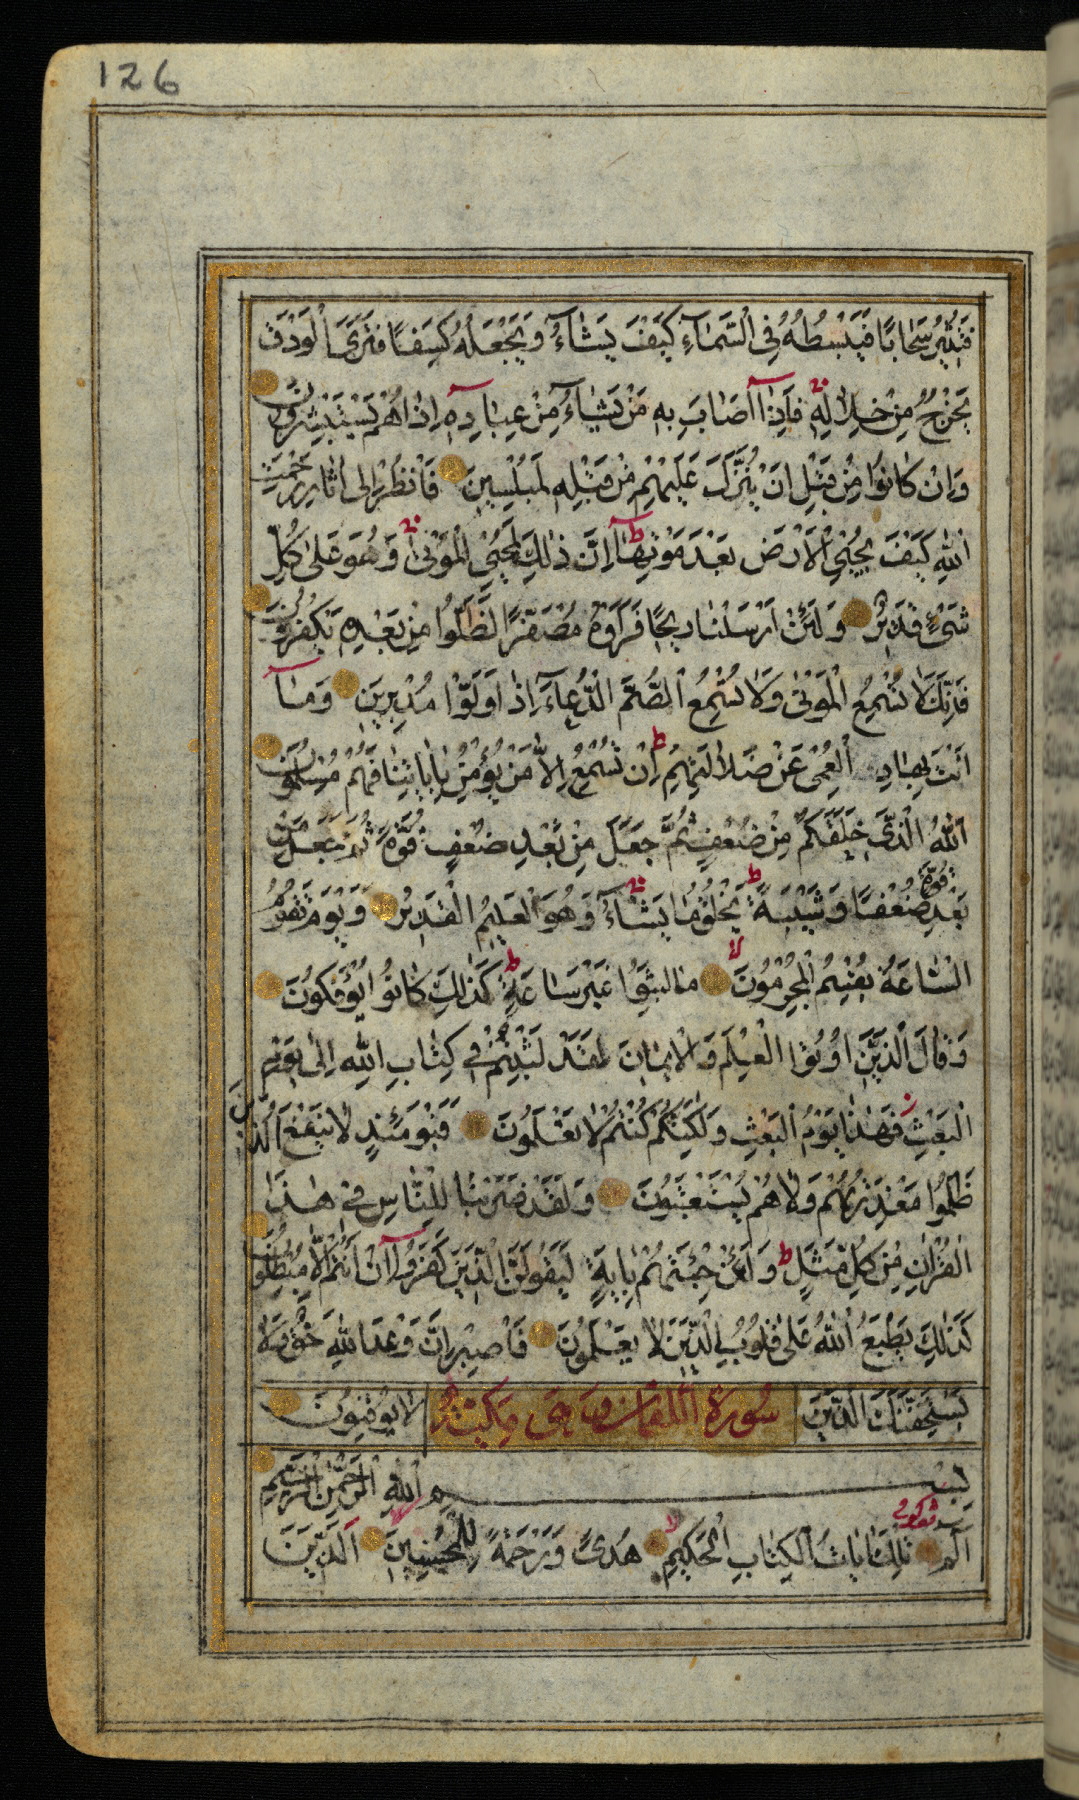 126
فَتُثِيرُ سَحَابًا فَيَبْسُطُهُ فِي السَّمَآءِ كَيْفَ يَشَآءُ وَيَجْعَلُهُ كِسَفًا فَتَرَى الْوَدْقَ
يَخْرُجُ مِنْ خِلَالِهِ فَاِذَا اَصَابَ بِهِ مَنْ يَشَآءُ مِنْ عِبَادِهِ اِذَا هُمْ يَسْتَبْشِرُونَ
وَاِنْ كَانُوا مِنْ قَبْلِ اَنْ يُنَزَّلَ عَلَيْهِمْ مِنْ قَبْلِهِ لَمُبْلِسِينَ فَانْظُرْ اِلَى اٰثَارِ رَحْمَتِ
اللهِ كَيْفَ يُحْيِي الْاَرْضَ بَعْدَ مَوْتِهَا اِنَّ ذٰلِكَ لَمُحْيِي الْمَوْتٰى وَهُوَ عَلٰى كُلِّ
شَيْءٍ قَدِيرٌ وَلَئِنْ اَرْسَلْنَا رِيحًا فَرَاَوْهُ مُصْفَرًّا لَظَلُّوا مِنْ بَعْدِهِ يَكْفُرُونَ
فَاِنَّكَ لَا تُسْمِعُ الْمَوْتٰى وَلَا تُسْمِعُ الصُّمَّ الدُّعَآءَ اِذَا وَلَّوْا مُدْبِرِينَ وَمَآ
اَنْتَ بِهَادِ الْعُمْيِ عَنْ ضَلَالَتِهِمْ اِنْ تُسْمِعُ اِلَّا مَنْ يُؤْمِنُ بِاٰيَاتِنَا فَهُمْ مُسْلِمُونَ
اَللهُ الَّذِي خَلَقَكُمْ مِنْ ضُعْفٍ ثُمَّ جَعَلَ مِنْ بَعْدِ ضُعْفٍ قُوَّةً ثُمَّ جَعَلَ مِنْ
بَعْدِ قُوَّةٍ ضُعْفًا وَشَيْبَةً يَخْلُقُ مَا يَشَآءُ وَهُوَ الْعَلِيمُ الْقَدِيرُ وَيَوْمَ تَقُومُ
السَّاعَةُ يُقْسِمُ الْمُجْرِمُونَ مَا لَبِثُوا غَيْرَ سَاعَةٍ كَذٰلِكَ كَانُوا يُؤْفَكُونَ
وَقَالَ الَّذِينَ اُوتُوا الْعِلْمَ وَالْاِيمَانَ لَقَدْ لَبِثْتُمْ فِي كِتَابِ اللهِ اِلٰى يَوْمِ
الْبَعْثِ فَهٰذَا يَوْمُ الْبَعْثِ وَلٰكِنَّكُمْ كُنْتُمْ لَا تَعْلَمُونَ فَيَوْمَئِذٍ لَا يَنْفَعُ الَّذِينَ
ظَلَمُوا مَعْذِرَتُهُمْ وَلَا هُمْ يُسْتَعْتَبُونَ وَلَقَدْ ضَرَبْنَا لِلنَّاسِ فِي هٰذَا
الْقُرْاٰنِ مِنْ كُلِّ مَثَلٍ وَلَئِنْ جِئْتَهُمْ بِاٰيَةٍ لَيَقُولَنَّ الَّذِينَ كَفَرُوا اِنْ اَنْتُمْ اِلَّا مُبْطِلُونَ
كَذٰلِكَ يَطْبَعُ اللهُ عَلٰى قُلُوبِ الَّذِينَ لَا يَعْلَمُونَ فَاصْبِرْ اِنَّ وَعْدَ اللهِ حَقٌّ وَلَا
يَسْتَخِفَّنَّكَ الَّذِينَ سُورَةُ اللقمان وهي مكية لَا يُوقِنُونَ
بِسْمِ اللهِ الرَّحْمٰنِ الرَّحِيمِ
الٓمٓ تِلْكَ اٰيَاتُ الْكِتَابِ الْحَكِيمِ هُدًى وَرَحْمَةً لِلْمُحْسِنِينَ اَلَّذِينَ